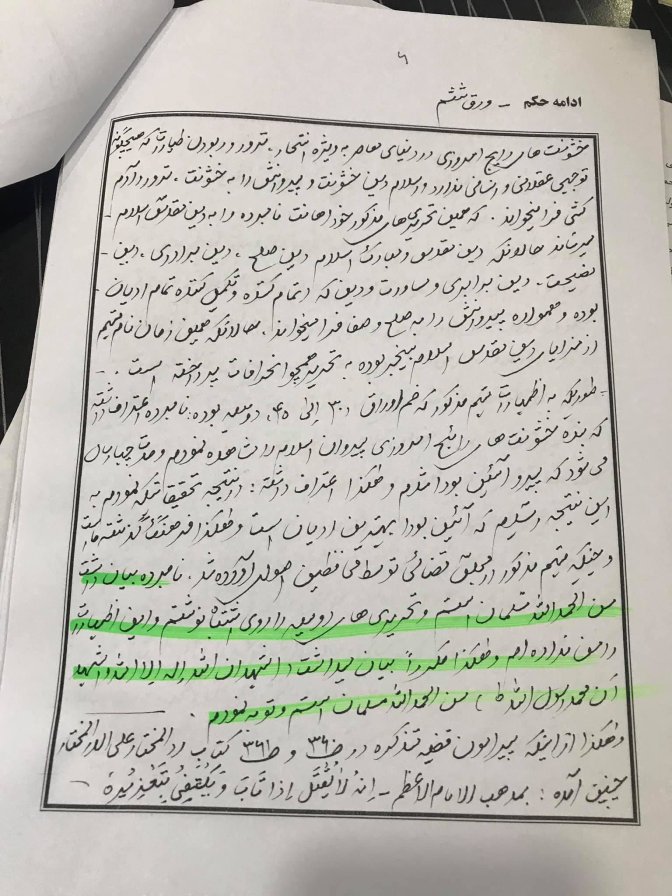 ۶
ادامه حکم - ورق ششم
خشونت های رایج امروزی در دنیای معاصر به ویژه انتحار، ترور و ربودن طیارات که هیچگونه
توجیهی عقلانی و انسانی ندارد و اسلام دین خشونت و پیروانش را به خشونت، ترور و آدم
کشی فرا میخواند. که همین تحریری های مذکور خود اهانت نامبرده را به دین مقدس اسلام
میرساند حالانکه دین مقدس و مبارک اسلام دین صلح، دین برادری، دین
نصیحت، دین برابری و مساوات و دین که اتمام کننده و تکمیل کننده تمام ادیان
بوده و همواره پیروانش را به صلح و صفا فرا میخواند. حالانکه همین زمان نام متهم
از مزایای دین مقدس اسلام بیخبر بوده به تحریر همچو انحرافات پرداخته است.
طوریکه به اظهارات متهم مذکور که ضم اوراق ۳۰ الی ۴۵ دوسیه بوده، نامبرده اعتراف داشته
که بنده خشونت های رایج امروزی پیروان اسلام را مشاهده نمودم و مدت چهار سال
می شود که پیرو آئین بودا شدم و هکذا اعتراف داشته: در نتیجه تحقیقاتیکه نمودم به
این نتیجه رسیدم که آئین بودا بهترین ادیان است و هکذا فرهنگ گذشته ماست
و حینیکه متهم مذکور در مجلس قضائی توسط مؤظفین اصولی آورده شد. نامبرده بیان داشت
من الحمدالله مسلمان استم و تحریری های دوسیه را روی اشتباه نوشتم و این اظهارات
را من نداده ام و هکذا مکرراً بیان میداشت (اشهد ان لا اله الا الله و اشهد
ان محمد رسول الله ط) من الحمدالله مسلمان استم و توبه نمودم.
و هکذا از اینکه پیرامون قضیه تذکره در ص۳۶۰ و ص۳۶۱ کتاب رد المختار علی الدر المختار
چنین آمده: بمذهب الامام الأعظم - إنهُ لاٰ یُقْتَلُ إذا تابَ وَ یَکْفِیُ بتَعْزیرهِ